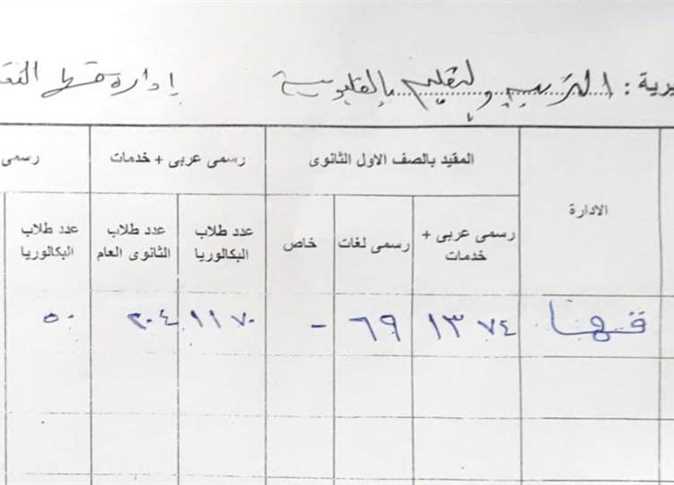 يرية : التربية والتعليم بالقليوبية إدارة قها التع
الادارة
المقيد بالصف الاول الثانوى
رسمى عربى + خدمات
رسمى
رسمى عربى + خدمات
رسمى لغات
خاص
عدد طلاب البكالوريا
عدد طلاب الثانوى العام
عدد طلاب البكالوريا
قها ١٣٧٤ ٦٩ - ١١٧٠ ٢٠٤ ٥٠